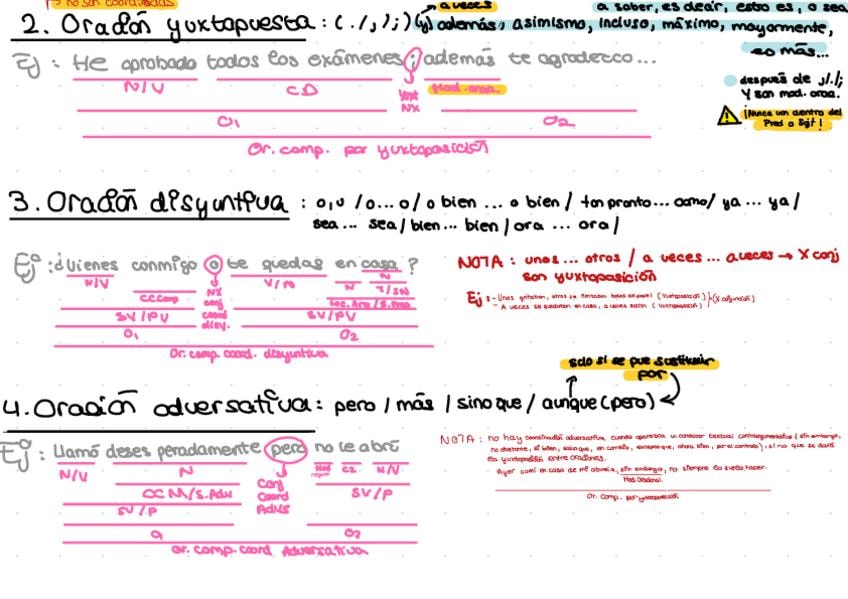 no son coordinadas
a veces
a saber, es decir, esto es, o sea
2. Oración yuxtapuesta : ( . / , / ; ) (y) además, asimismo, incluso, máximo, mayormente,
es más...
Ej : He aprobado todos los exámenes ; además te agradezco...
N/V CD Yuxt Mod. orac.
NX
O1 O2
Or. comp. por yuxtaposición
después de ,/./;
Y son mod. orac.
¡Nunca van dentro del
Pred o Sujt!
3. Oración disyuntiva : o, u / o... o / o bien ... o bien / tan pronto... como / ya ... ya /
sea ... sea / bien ... bien / ora ... ora /
Ej : ¿Vienes conmigo o te quedas en casa ?
N/V NX V/N N N
CC Comp conj E/SN
coord
SV/PV disy. SV/PV
O1 O2
Or. comp. coord. disyuntiva
NOTA : unos ... otros / a veces ... a veces → X conj
son yuxtaposición
Ej : - Unos gritaban, otros se
- A veces se quedaban en casa, a veces salían (Yuxtaposición)
solo si se pue sustituir
por
4. Oración adversativa : pero / más / sino que / aunque (pero)
Ej : Llamó deses peradamente pero no le abrí
N/V N Conj Mod CI N/V
CC M/S.Adv Coord SV/P
SV/P Advs
O1 O2
Or. comp. coord Adversativa
NOTA : no hay coordinación adversativa cuando aparezca un conector textual contraargumentativo ( sin embargo,
no obstante, si bien, salvo que, en cambio, excepto que, ahora bien, por el contrario ), si no que se dará
la yuxtaposición entre oraciones.
Ayer comí en casa de mi abuela, sin embargo, no siempre lo suelo hacer.
Mod. Oracional.
Or. Comp. por yuxtaposición